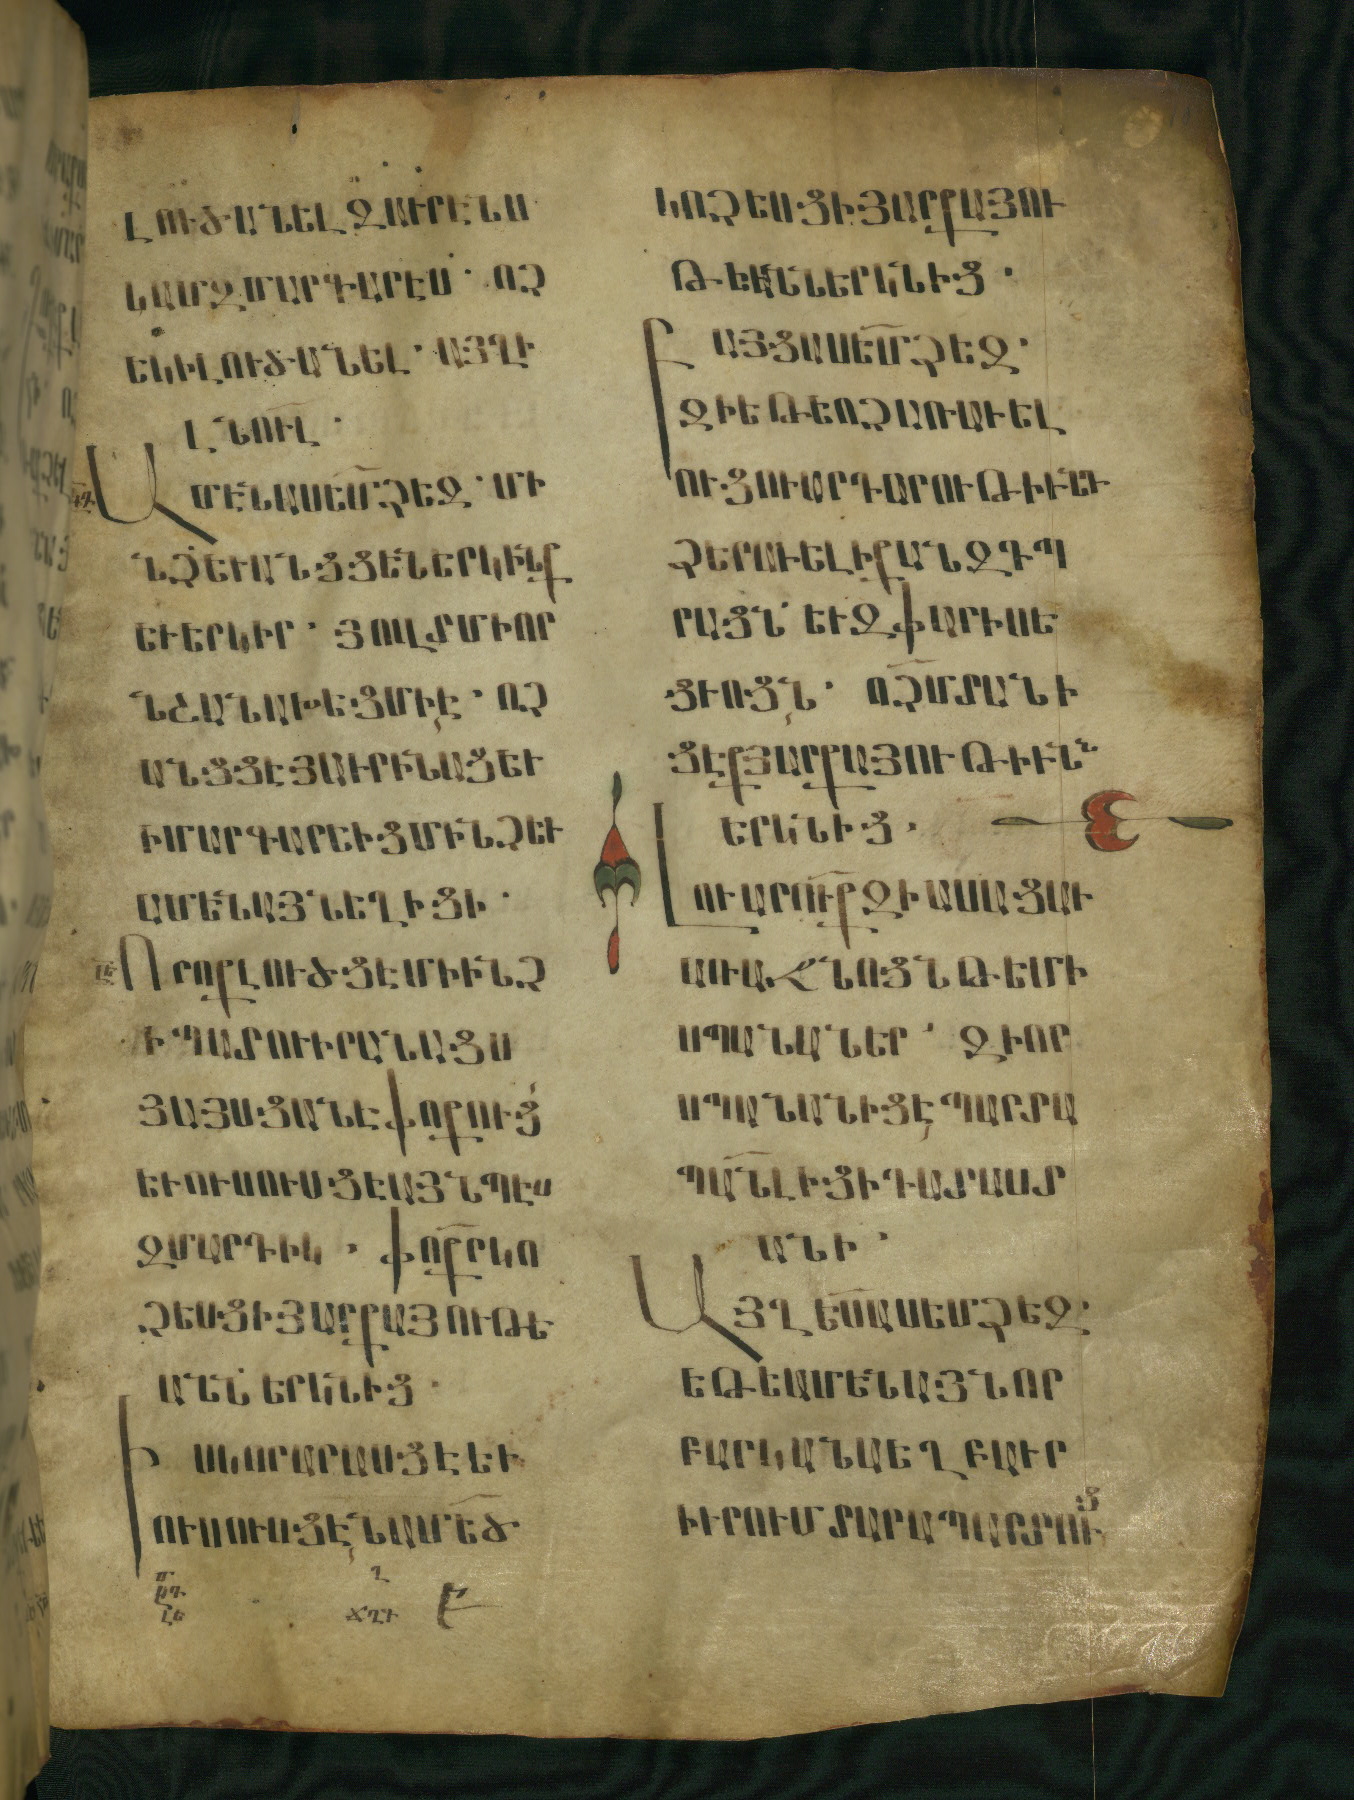 ԼՈՒԾԱՆԵԼ ԶԱՒՐԷՆՍ
ԿԱՄ ԶՄԱՐԳԱՐԷՍ · ՈՉ
ԵԿԻ ԼՈՒԾԱՆԵԼ · ԱՅՂԻ
ԼՆՈՒԼ ·
ԱՄԷՆ ԱՍԵՄ ՁԵԶ · ՄԻ
ՆՉԵՒ ԱՆՑՑԵՆ ԵՐԿԻՆՔ
ԵՒ ԵՐԿԻՐ · ՅՈՎՏ ՄԻ ՈՐ
ՆՇԱՆԱԽԵՑ ՄԻ Է · ՈՉ
ԱՆՑՑԷ ՅԱՒՐԻՆԱՑ ԵՒ
Ի ՄԱՐԳԱՐԷԻՑ ՄԻՆՉԵՒ
ԱՄԵՆԱՅՆ ԵՂԻՑԻ ·
ՈՐ ՈՔ ԼՈՒԾՑԷ ՄԻ ԻՆՉ
Ի ՊԱՏՈՒԻՐԱՆԱՑՍ
ՅԱՅՍՑԱՆԷ ՓՈՔՈՒՑ
ԵՒ ՈՒՍՈՒՍՑԷ ԱՅՆՊԷՍ
ԶՄԱՐԴԻԿ · ՓՈՔՐ ԿՈ
ՉԵՍՑԻ ՅԱՐՔԱՅՈՒԹԵ
ԱՆՆ ԵՐԿՆԻՑ ·
ԻՍԿ ՈՐ ԱՐԱՍՑԷ ԵՒ
ՈՒՍՈՒՍՑԷ ՆԱ ՄԵԾ
ԿՈՉԵՍՑԻ ՅԱՐՔԱՅՈՒ
ԹԵԱՆՆ ԵՐԿՆԻՑ ·
ԲԱՅՑ ԱՍԵՄ ՁԵԶ ·
ԶԻ ԵԹԵ ՈՉ ԱՌԱՒԵԼ
ՈՒՑՈՒ ԱՐԴԱՐՈՒԹԻՒՆ
ՁԵՐ ԱՒԵԼԻ ՔԱՆ ԶԴՊ
ՐԱՑՆ ԵՒ ԶՓԱՐԻՍԵ
ՑՒՈՑՆ · ՈՉ ՄՏԱՆԻ
ՑԷՔ ՅԱՐՔԱՅՈՒԹԻՒՆ
ԵՐԿՆԻՑ ·
ԼՈՒԱՐՈՒՔ ԶԻ ԱՍԱՑԱՒ
ԱՌԱՋՆՈՑՆ ԹԵ ՄԻ
ՍՊԱՆԱՆԵՐ · ԶԻ ՈՐ
ՍՊԱՆԱՆԻՑԷ ՊԱՐՏԱ
ՊԱՆ ԼԻՑԻ ԴԱՏԱՍՏ
ԱՆԻ ·
ԱՅՂ ԵՍ ԱՍԵՄ ՁԵԶ ·
ԵԹԵ ԱՄԵՆԱՅՆ ՈՐ
ԲԱՐԿԱՆԱ ԵՂԲԱՒՐ
ԻՒՐՈՒՄ ՏԱՐԱՊԱՐՏՈՒՑ